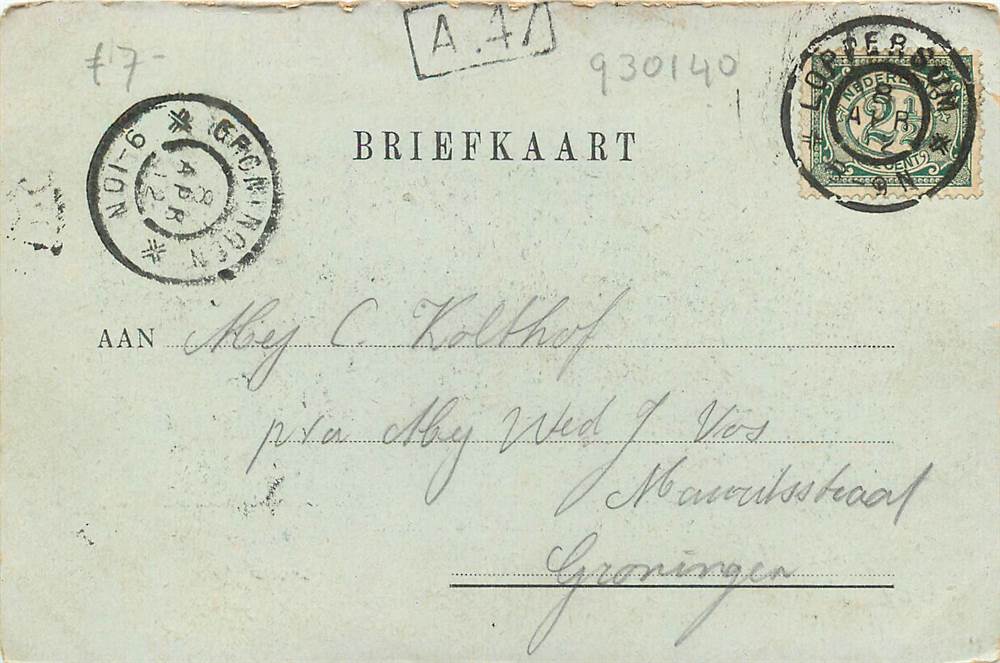 £ 7-
A.
930140
LOPPERSUM
8 APR
9 11
NEDERLAND
2½
CENT
GRONINGEN
8 APR 12
9-10N
BRIEFKAART
AAN Mej C. Kolthof
p/a Mej Wed J Vos
Mauritsstraat
Groningen